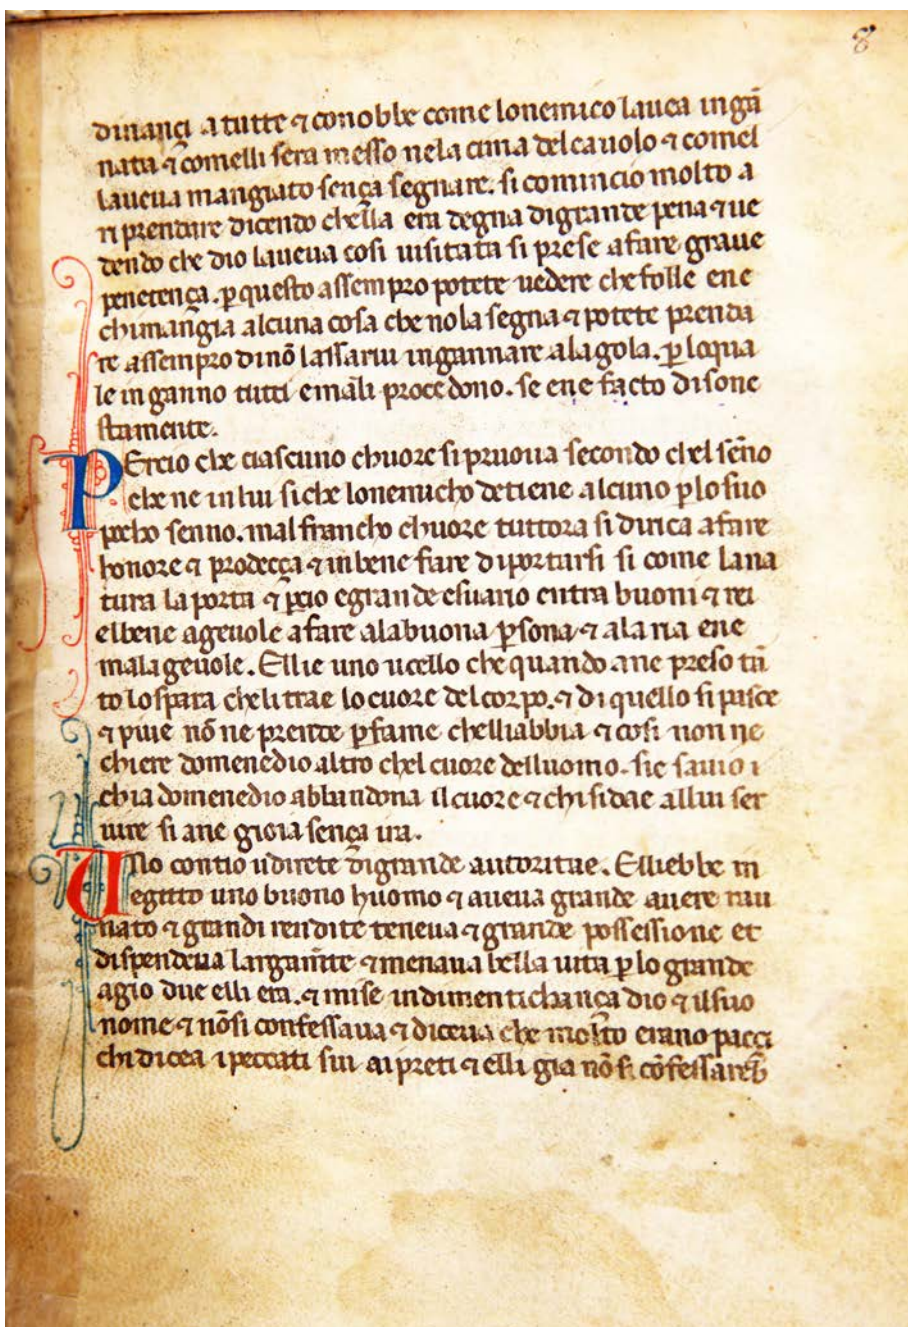 8
dinançi a tutte ⁊ conobbe come lonemico lauea ingã
nata ⁊ comelli sera messo nela cima del cauolo ⁊ comel
laueua mangiato sença segnare. si comincio molto a
ri prendare dicendo chella era degna digrande pena ⁊ ue
dendo che dio laueua cosi uisitata si prese afare graue
penetença. p̱ questo assempro potete uedere che folle ene
chi mangia alcuna cosa che nola segna ⁊ potete prenda
re assempro di nõ lassarui ingannare ala gola. p̱ loqua
le inganno tutti emali procedono. se ene facto disone
stamente.
PErcio che ciascuno chuore si pruoua secondo chel señо
che ne in lui si che lonemicho detiene alcuno p̱ lo suo
pocho senno. mal francho chuore tuttora si diriça afare
honore ⁊ prodeçça ⁊ in bene fare diportarsi si come lana
tura la porta ⁊ p̱cio egrande esuario entra buoni ⁊ rei
elbene ageuole afare alabuona p̱sona ⁊ ala ria ene
malageuole. Ellie uno ucello che quando ane preso tñ
to lo spara chelitrae lo cuore del corpo. ⁊ di quello si pasce
⁊ uiue nõ ne prende p̱ fame chelliabbia ⁊ cosi non ne
chiere domenedio altro chel cuore delluomo. sie sauio i
chi a domenedio abbandona il cuore ⁊ chi si dae allui ser
uire si ane gioia sença ira.
UNo contio udirete digrande autoritae. Elliebbe in
egitto uno buono huomo ⁊ aueua grande auere rau
nato ⁊ grandi rendite teneua ⁊ grande possessione et
dispendeua largam̃te ⁊ menaua bella uita p̱ lo grande
agio due elli era. ⁊ mise indimentichança dio ⁊ il suo
nome ⁊ nõsi confessaua ⁊ diceua che molto erano paççi
chi dicea i peccati sui ai preti ⁊ elli gia nõ si cõfessareb